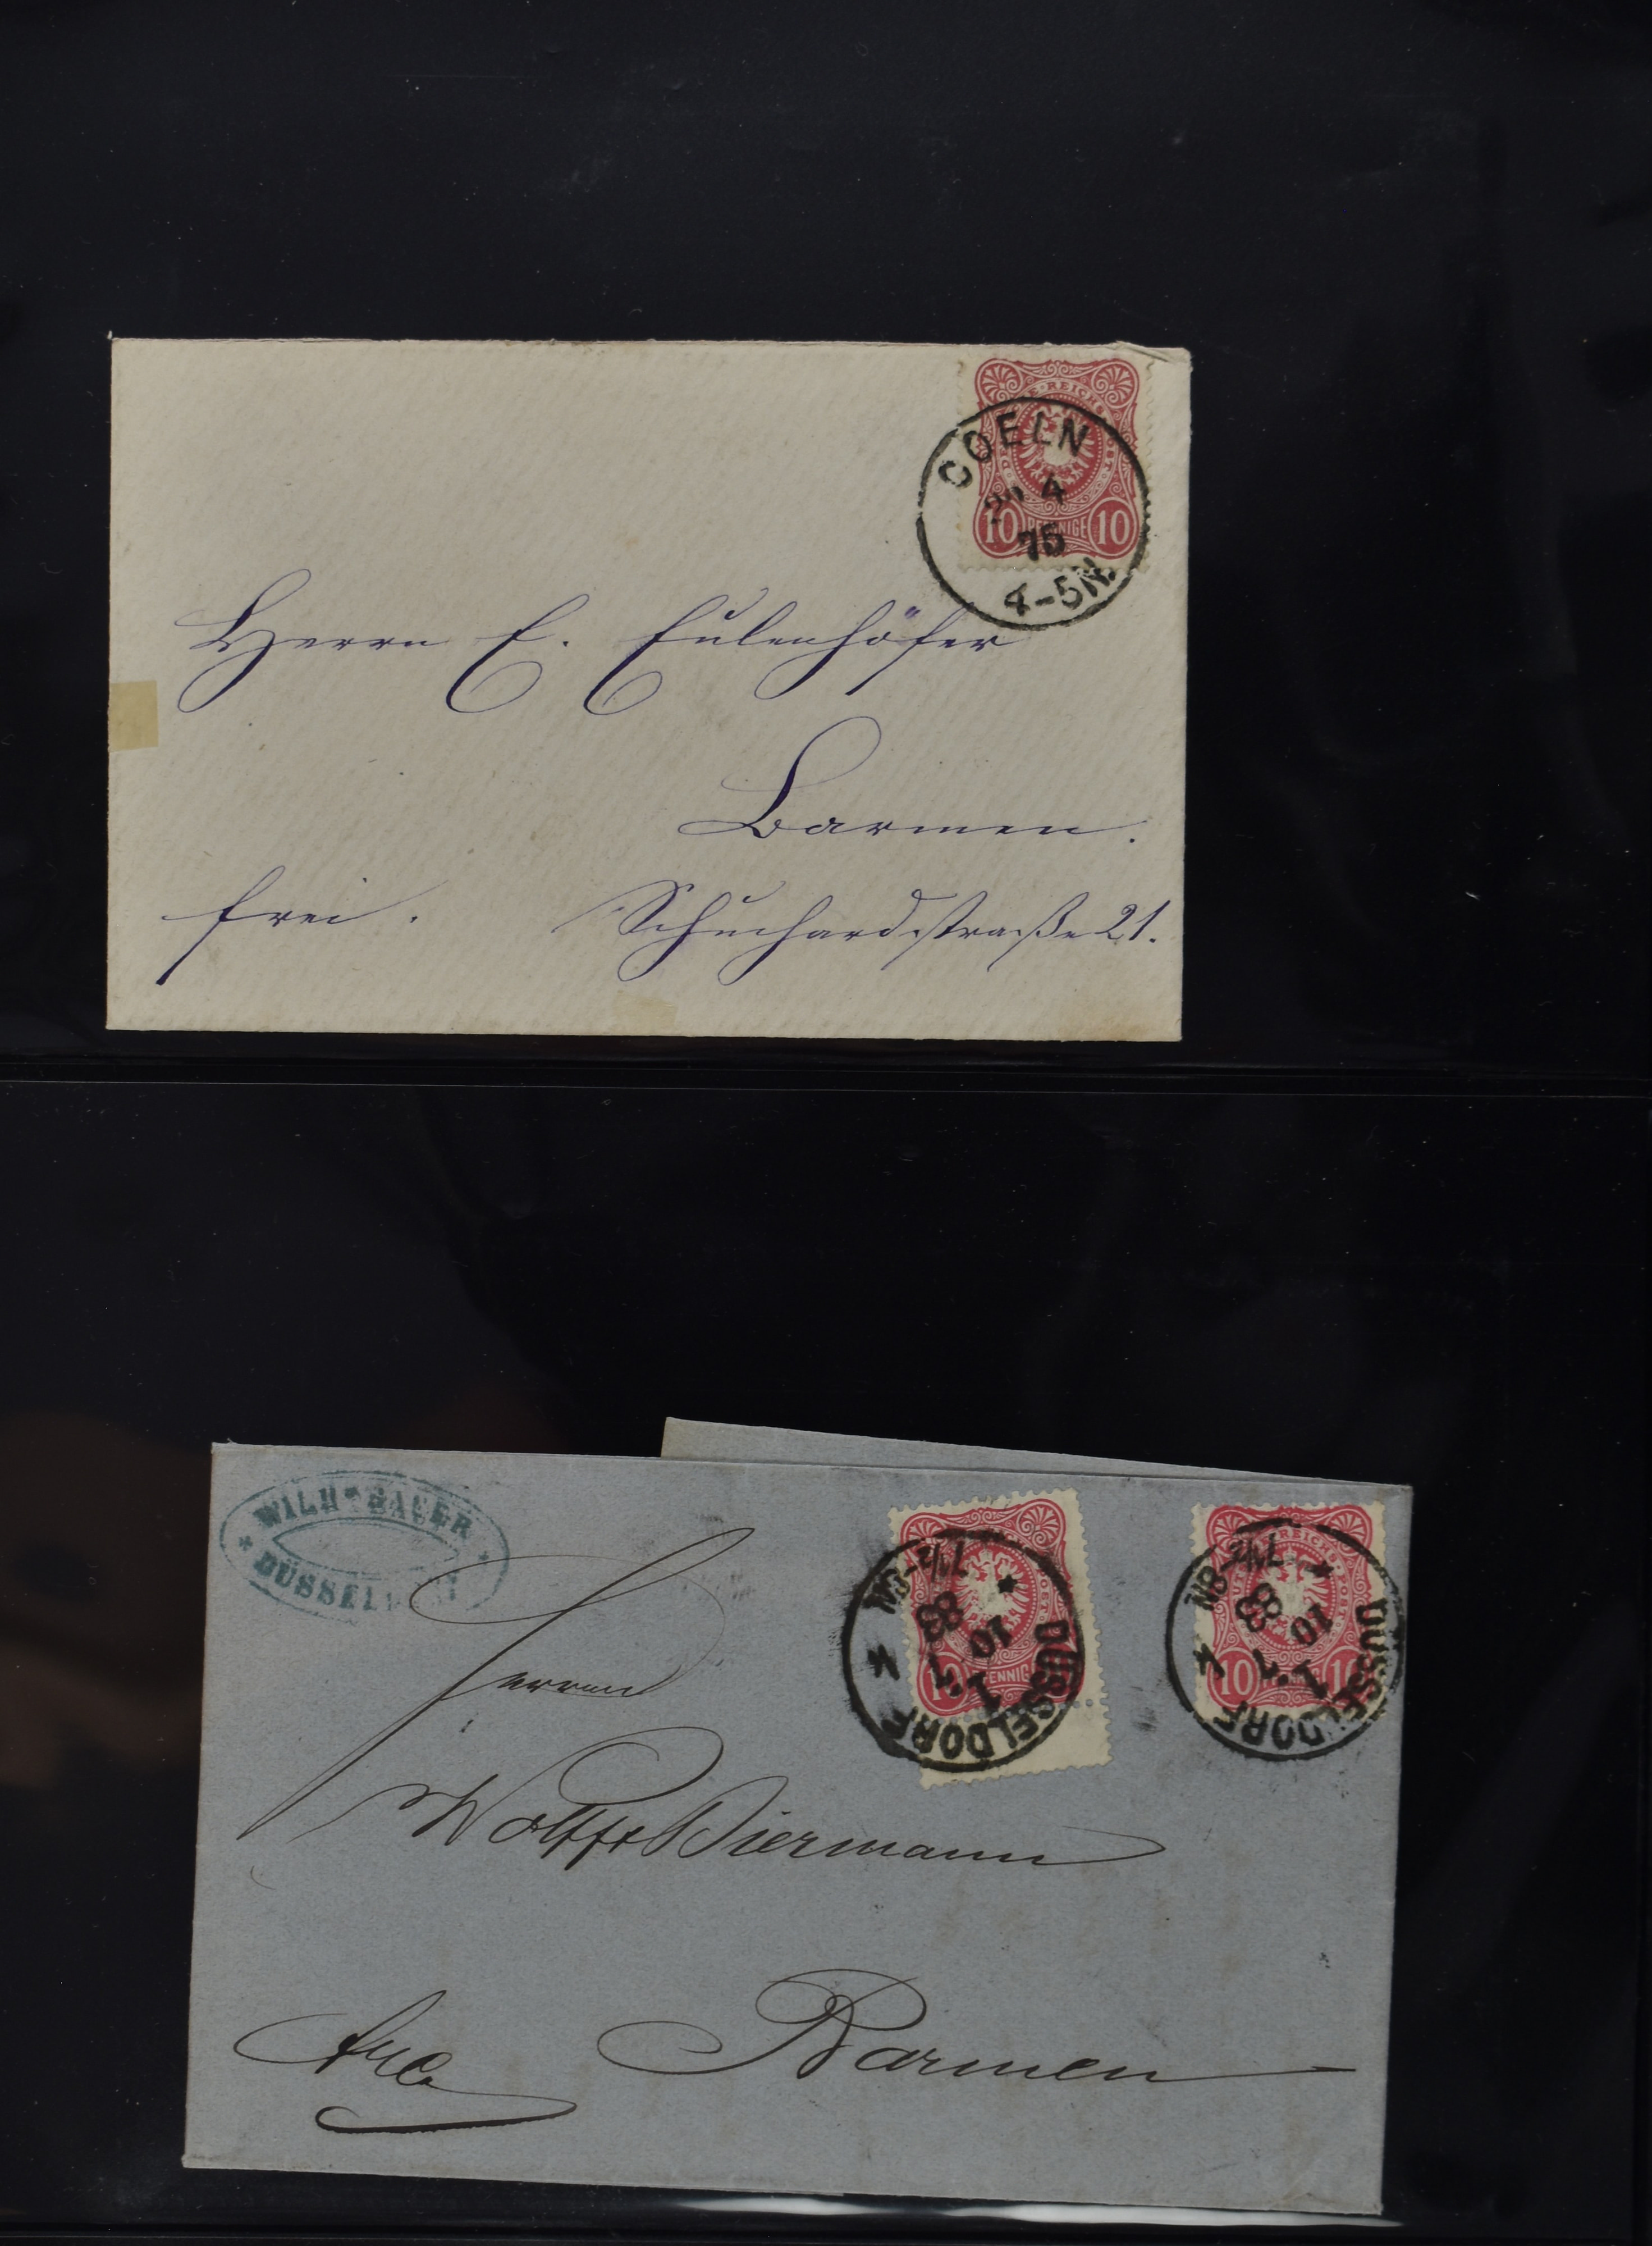 COELN
4
75
4-5N.
10 PFENNIGE 10
Herrn E. Eulenhöfer
Barmen.
frei. Schuchardstraße 21.
WILH. BAUER
DÜSSELDORF
DÜSSELDORF
1
10
83
7½-8N
DÜSSELDORF
1
10
83
7½-8N
10 PFENNIGE
10 PFENNIGE 10
Herren
Wolff &
Barmen